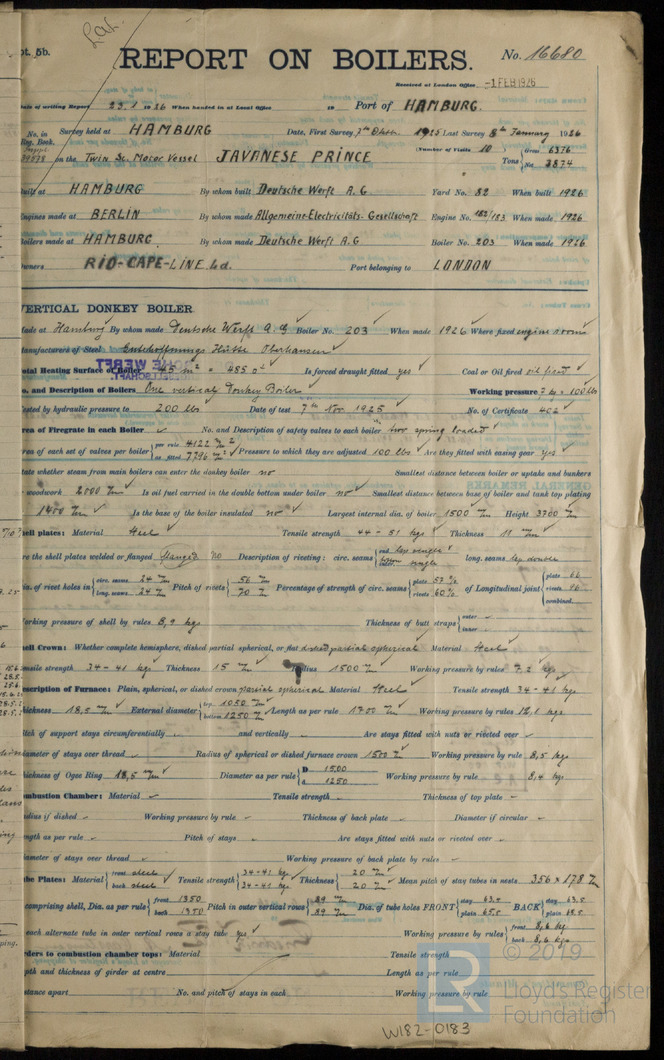 pt. 5b.
REPORT ON BOILERS.
No. 16680
Received at London Office -1 FEB 1926
Date of writing Report 23.1 1926 When handed in at Local Office 19 Port of HAMBURG.
No. in Reg. Book. Survey held at HAMBURG Date, First Survey 7th Oktbr. 1925 Last Survey 8th January 1926
(Number of Visits 10) Gross 6376
on the Twin Sc. Motor Vessel JAVANESE PRINCE Tons Net 3874
Built at HAMBURG By whom built Deutsche Werft A.G Yard No. 82 When built 1926
Engines made at BERLIN By whom made Allgemeine-Electricitäts-Gesellschaft Engine No. 182/183 When made 1926
Boilers made at HAMBURG By whom made Deutsche Werft A.G Boiler No. 203 When made 1926
Owners RIO-CAPE-LINE Ld. Port belonging to LONDON
VERTICAL DONKEY BOILER
Made at Hamburg By whom made Deutsche Werft A.G Boiler No. 203 When made 1926 Where fixed engine room
Manufacturers of Steel Gutehoffnungs Hütte Oberhausen
Total Heating Surface of Boiler 45 m² = 485 □' Is forced draught fitted yes Coal or Oil fired oil fired
No. and Description of Boilers One vertical Donkey Boiler Working pressure 7 kg = 100 lbs
Tested by hydraulic pressure to 200 lbs Date of test 7th Nov. 1925 No. of Certificate 402
Area of Firegrate in each Boiler No. and Description of safety valves to each boiler two spring loaded
Area of each set of valves per boiler per rule 4122 as fitted 7796 Pressure to which they are adjusted 100 lbs Are they fitted with easing gear yes
State whether steam from main boilers can enter the donkey boiler no Smallest distance between boiler or uptake and bunkers
or woodwork 2000 m/m Is oil fuel carried in the double bottom under boiler no Smallest distance between base of boiler and tank top plating
1400 m/m Is the base of the boiler insulated no Largest internal dia. of boiler 1500 m/m Height 3700 m/m
Shell plates: Material steel Tensile strength 44-51 kgs Thickness 11 m/m
Are the shell plates welded or flanged flanged no Description of riveting: circ. seams end lap single inter. single long. seams lap double
Dia. of rivet holes in circ. seams 24 m/m long. seams 24 m/m Pitch of rivets 56 m/m 70 m/m Percentage of strength of circ. seams plate 57 % rivets 60 % of Longitudinal joint plate rivets combined
Working pressure of shell by rules 8,9 kgs Thickness of butt straps outer inner
Shell Crown: Whether complete hemisphere, dished partial spherical, or flat dished partial spherical Material steel
Tensile strength 34-41 kgs Thickness 15 m/m Radius 1500 m/m Working pressure by rules 7.2 kgs
Description of Furnace: Plain, spherical, or dished crown partial spherical Material steel Tensile strength 34-41 kgs
Thickness 18,5 m/m External diameter top 1050 m/m bottom 1250 m/m Length as per rule 1700 m/m Working pressure by rules 12,1 kgs
Pitch of support stays circumferentially and vertically Are stays fitted with nuts or riveted over
Diameter of stays over thread Radius of spherical or dished furnace crown 1500 m/m Working pressure by rule 8,5 kgs
Thickness of Ogee Ring 18,5 m/m Diameter as per rule D 1500 d 1250 Working pressure by rule 8,4 kgs
Combustion Chamber: Material Tensile strength Thickness of top plate
Radius if dished Working pressure by rule Thickness of back plate Diameter if circular
Length as per rule Pitch of stays Are stays fitted with nuts or riveted over
Diameter of stays over thread Working pressure of back plate by rules
Tube Plates: Material front steel back steel Tensile strength 34-41 kgs 34-41 kgs Thickness 20 m/m 20 m/m Mean pitch of stay tubes in nests 356 × 178 m/m
If comprising shell, Dia. as per rule front 1350 back 1350 Pitch in outer vertical rows 89 m/m 89 m/m Dia. of tube holes FRONT stay 63.5 plain 65.5 BACK stay 63.5 plain
Is each alternate tube in outer vertical rows a stay tube yes Working pressure by rules front 8,6 kgs back 8,6 kgs
Girders to combustion chamber tops: Material Tensile strength
Depth and thickness of girder at centre Length as per rule
Distance apart No. and pitch of stays in each Working pressure by rule
© 2019
Lloyd's Register
Foundation
W182-0183